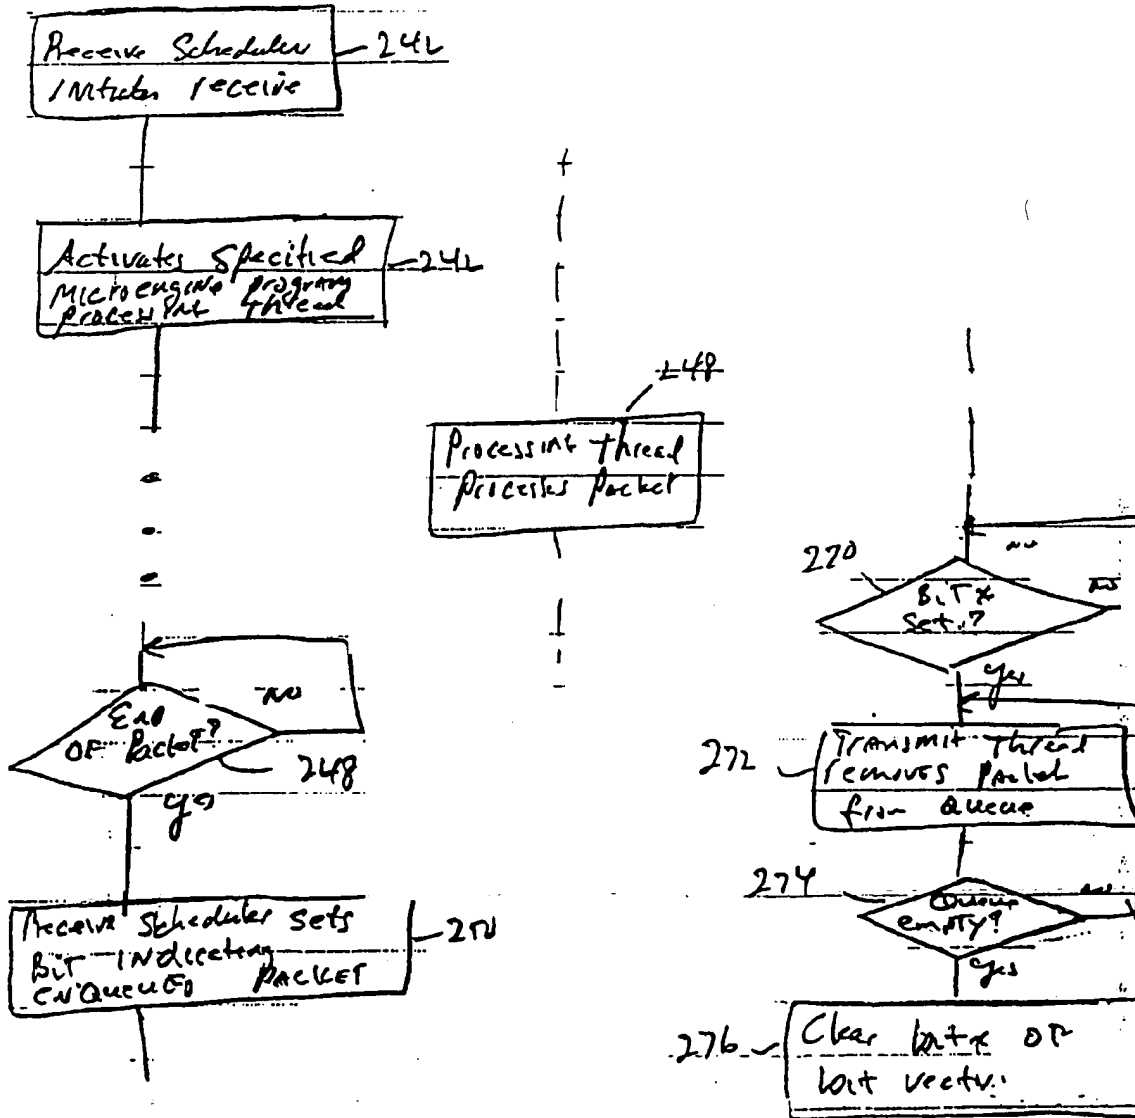 Receive Scheduler
Initiates receive
242
Activates Specified
Microengine program
processing thread
242
248
Processing thread
processes packet
End
OF Packet?
NO
248
yes
Receive Scheduler sets
Bit indicating
enqueued PACKET
250
NO
270
Bit x
set?
NO
yes
272
Transmit thread
removes packet
from Queue
274
Queue
empty?
NO
yes
276
Clear bit x OF
bit vector